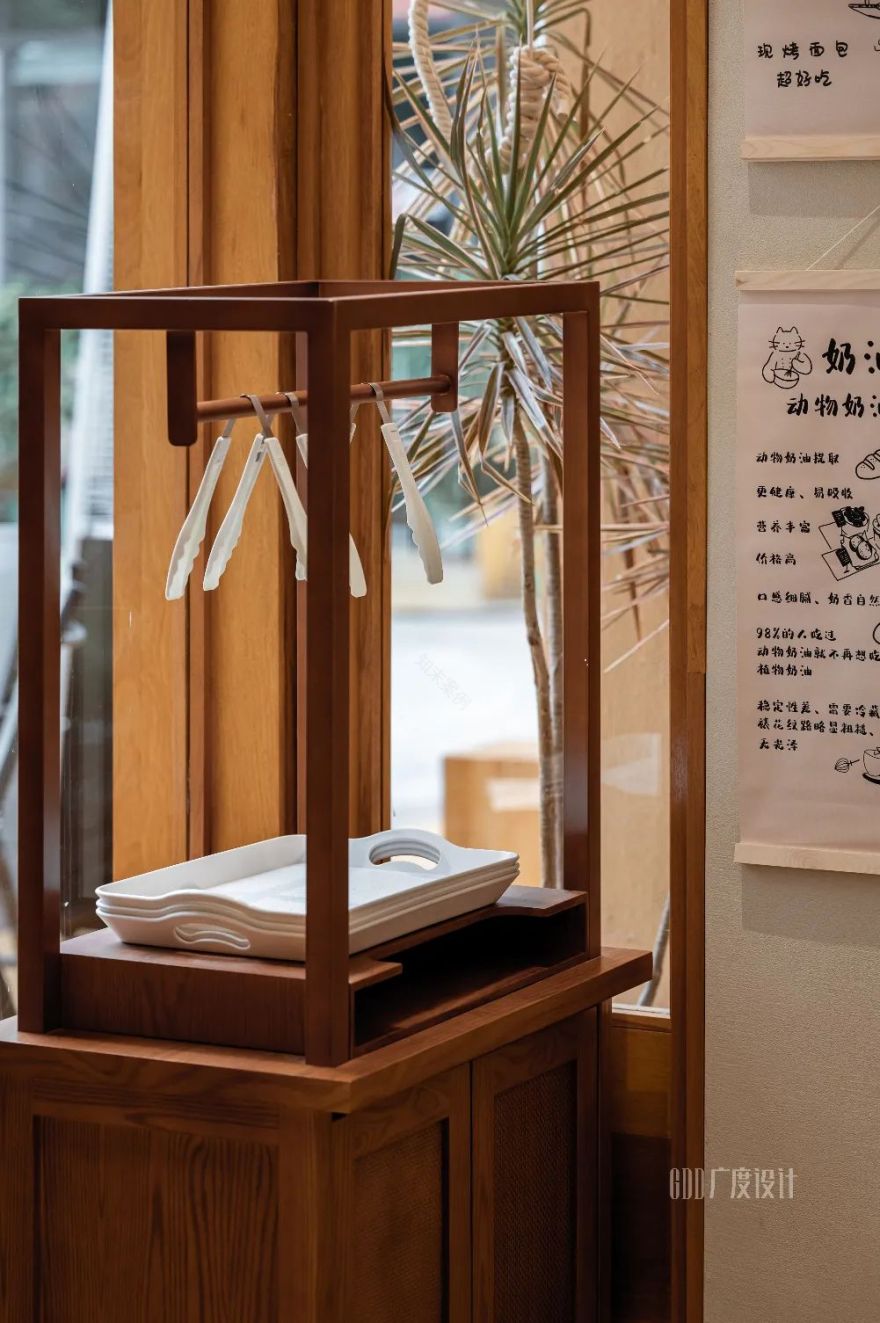 现烤面包
超好吃
奶油
动物奶油
动物奶油提取
更健康、易吸收
营养丰富
价格高
口感细腻、奶香自然
98%的人吃过
动物奶油就不再想吃
植物奶油
稳定性差、需要冷藏
裱花纹路略显粗糙、
无光泽
知末案例
GDD广度设计